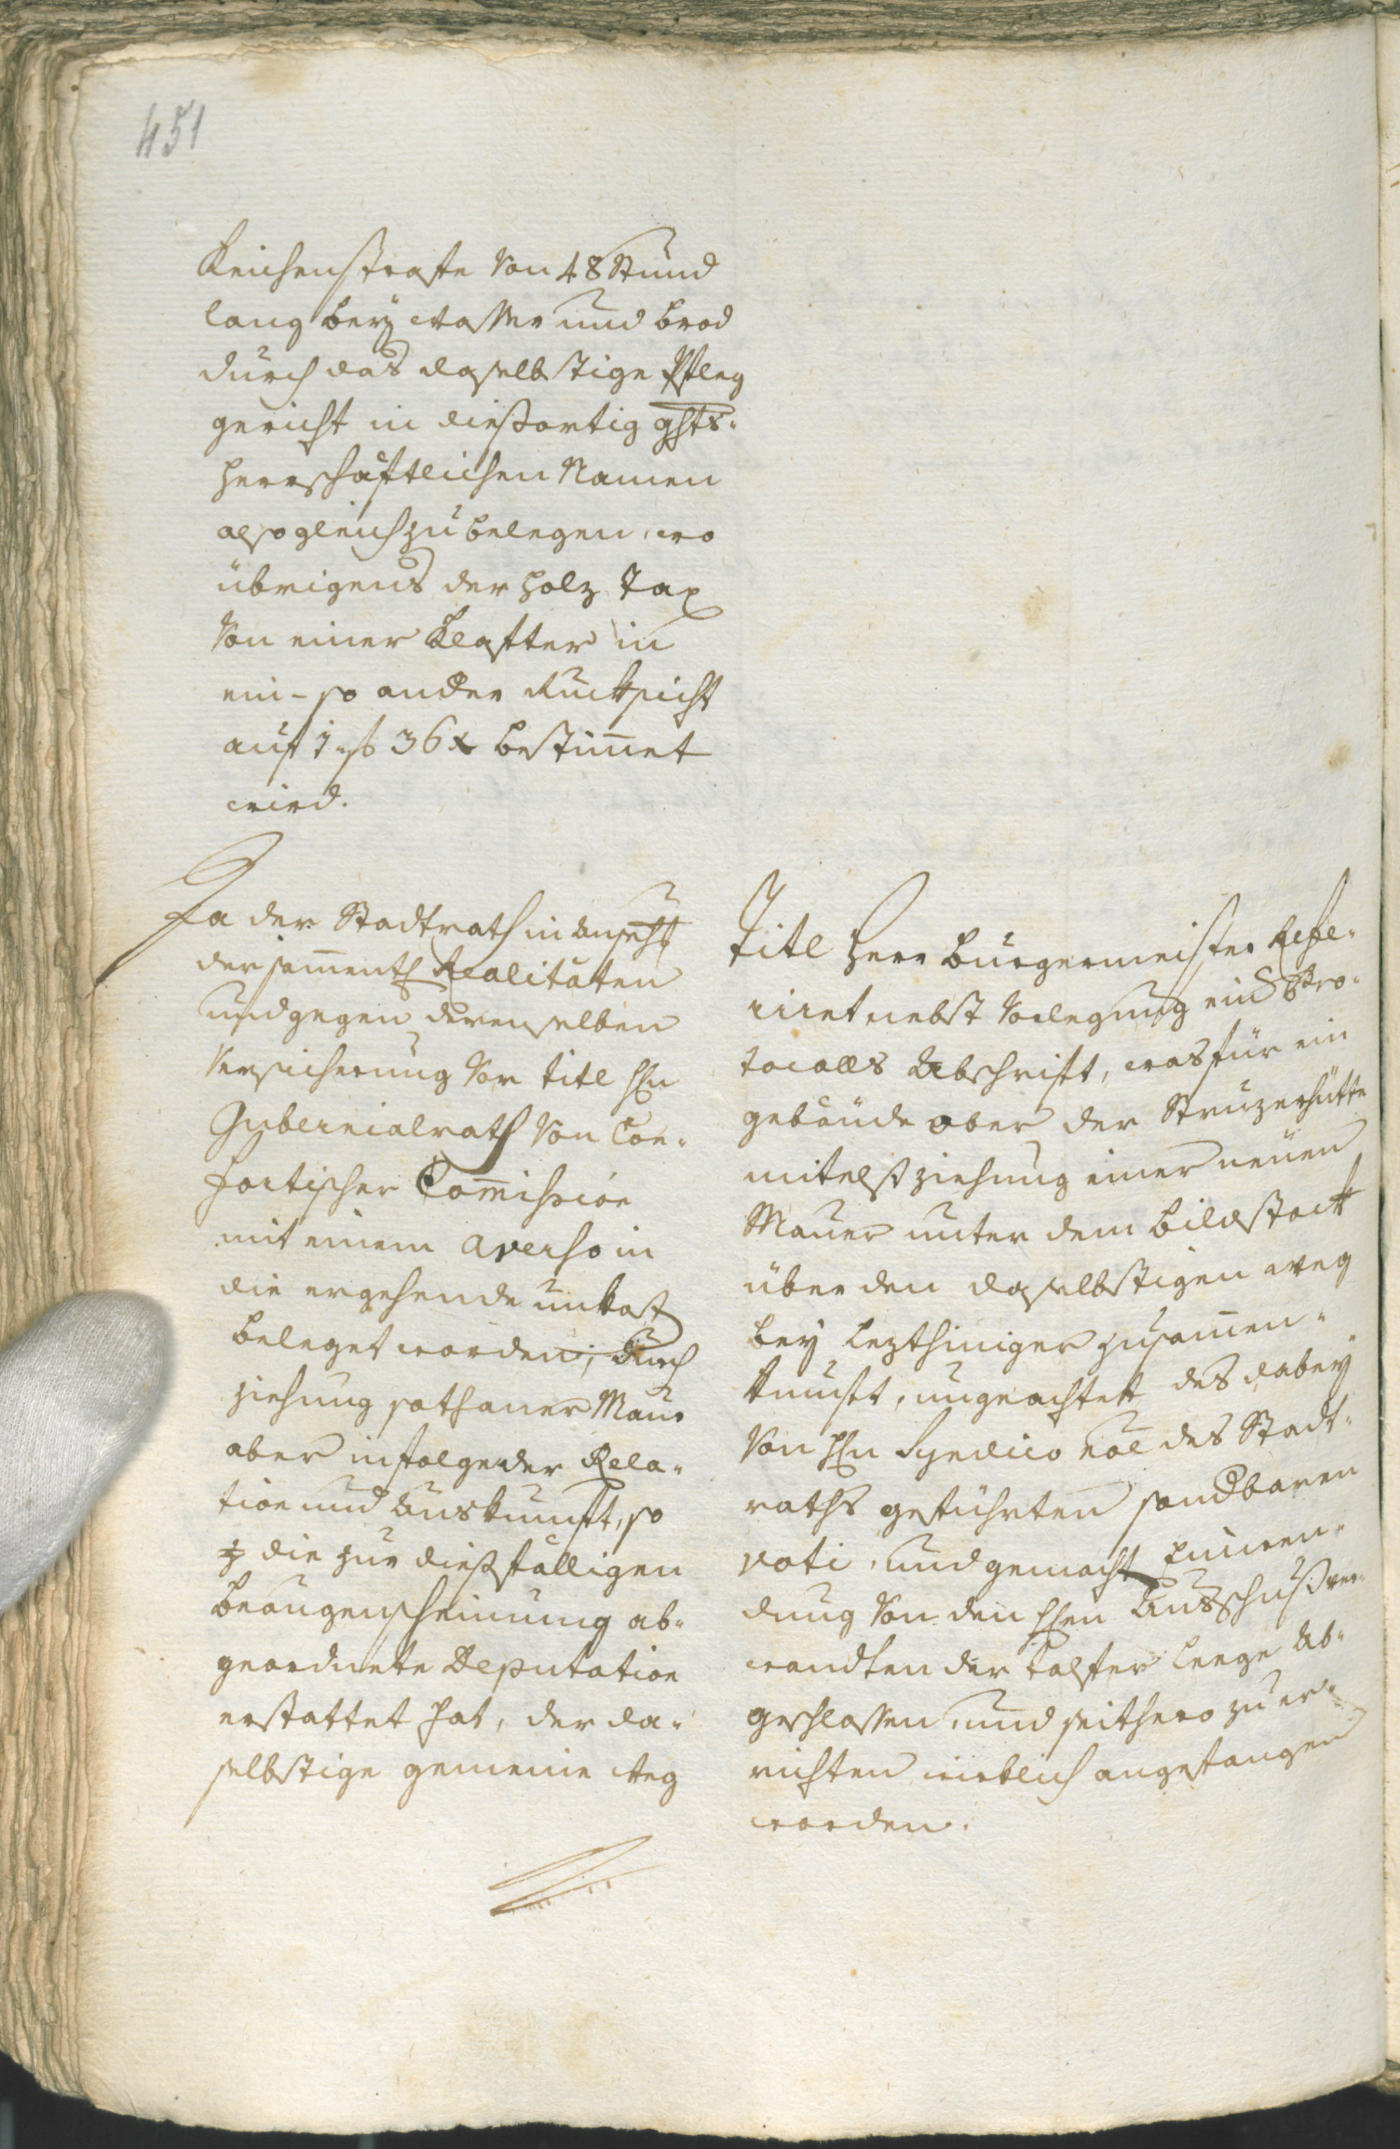 451
Keichenstrafe von 48 Stund
lang bey wasser und brod
durch das daselbstige Pfleg
gericht in dießortig ghts-
herrschäftlichen Namen
alsogleich zu belegen, wo
übrigens der Holz Tax
von einer Klafter in
ein- so ander Rucksicht
auf 1 f 36 x bestim̄et
wird.
Da der Stadtrath in Ansicht
der sam̄entl. Realitäten
und gegen derenselben
Versicherung vor titl Hn
Gubernialrath von Con-
fortischer Com̄ission
mit einem averso in
die ergehende unkost
beleget worden; durch
ziehung sothaner Maur
aber infolge der Rela-
tion und Auskunft, so
die zur dießfälligen
Beaugenscheinung ab-
geordnete Deputation
erstattet hat, der da-
selbstige gemeine weg
Titl Herr Burgermeister Refe-
riret nebst Vorlegung ein Pro-
tocolls Abschrift, was für ein
gebäude ober der Struzerhütte
mitelst ziehung einer neuen
Mauer unter dem bildstock
über den daselbstigen weg
bey lezthiniger zusam̄en-
kunft, ungeachtet des dabey
von Hn Syndico noe des Stadt-
raths geführten sondbaren
voti, und gemacht Einwen-
dung von den Hen Ausschußver-
wandten der talfer Leege ab-
geschlossen, und seithero zu er-
richten wirklich angefangen
worden.